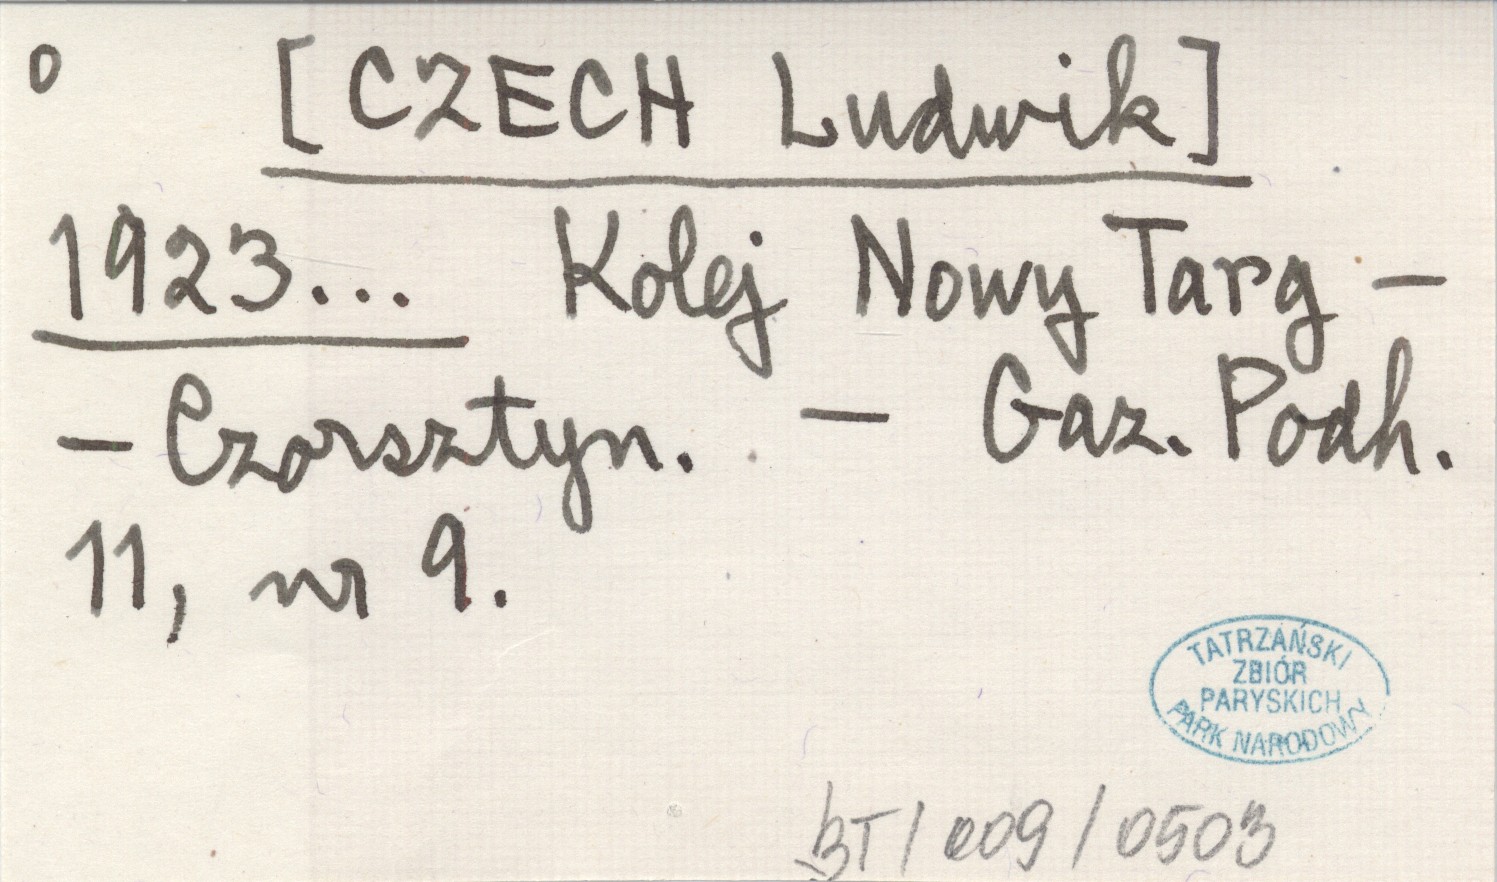 o [CZECH Ludwik]
1923... Kolej Nowy Targ –
– Czorsztyn. – Gaz. Podh.
11, nr 9.
TATRZAŃSKI
ZBIÓR
PARYSKICH
PARK NARODOWY
BT/009/0503